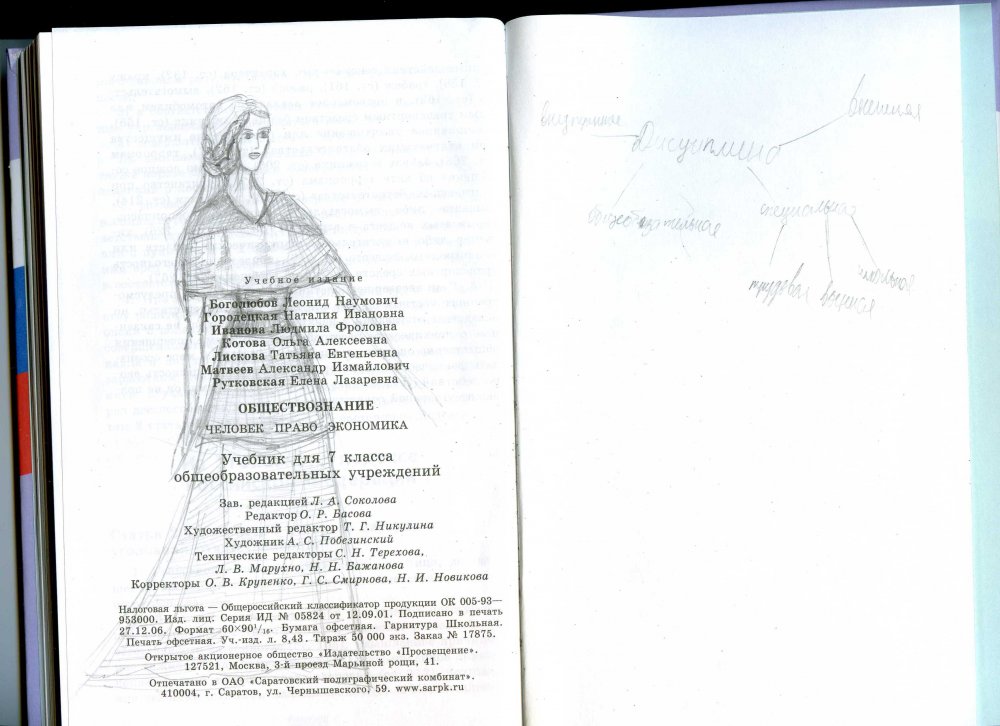 Учебное издание
Боголюбов Леонид Наумович
Городецкая Наталия Ивановна
Иванова Людмила Фроловна
Котова Ольга Алексеевна
Лискова Татьяна Евгеньевна
Матвеев Александр Измайлович
Рутковская Елена Лазаревна
ОБЩЕСТВОЗНАНИЕ
ЧЕЛОВЕК ПРАВО ЭКОНОМИКА
Учебник для 7 класса
общеобразовательных учреждений
Зав. редакцией Л. А. Соколова
Редактор О. Р. Басова
Художественный редактор Т. Г. Никулина
Художник А. С. Побезинский
Технические редакторы С. Н. Терехова,
Л. В. Марухно, Н. Н. Бажанова
Корректоры О. В. Крупенко, Г. С. Смирнова, Н. И. Новикова
Налоговая льгота — Общероссийский классификатор продукции ОК 005-93—
953000. Изд. лиц. Серия ИД № 05824 от 12.09.01. Подписано в печать
27.12.06. Формат 60×90 1/16. Бумага офсетная. Гарнитура Школьная.
Печать офсетная. Уч.-изд. л. 8,43. Тираж 50 000 экз. Заказ № 17875.
Открытое акционерное общество «Издательство «Просвещение».
127521, Москва, 3-й проезд Марьиной рощи, 41.
Отпечатано в ОАО «Саратовский полиграфический комбинат».
410004, г. Саратов, ул. Чернышевского, 59. www.sarpk.ru
внешняя
Дисциплина
специальная
школьная
трудовая военная